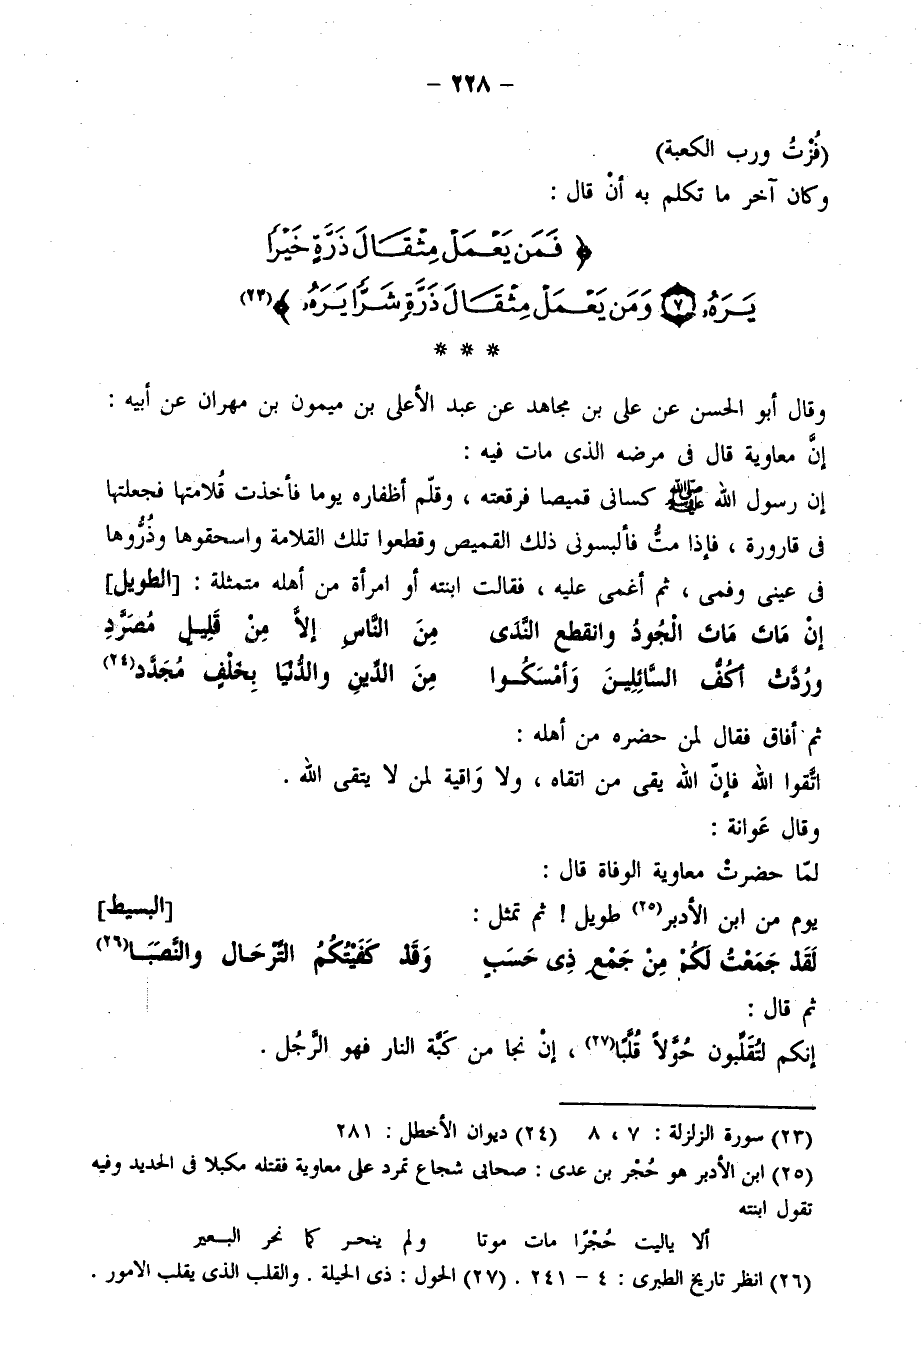 - ٢٢٨ -
(فُزْتُ ورب الكعبة)
وكان آخر ما تكلم به أنْ قال :
﴿ فَمَن يَعْمَلْ مِثْقَالَ ذَرَّةٍ خَيْرًا
يَرَهُۥ ٧ وَمَن يَعْمَلْ مِثْقَالَ ذَرَّةٍ شَرًّا يَرَهُۥ ﴾(٢٣)
* * *
وقال أبو الحسن عن على بن مجاهد عن عبد الأعلى بن ميمون بن مهران عن أبيه :
إنَّ معاوية قال فى مرضه الذى مات فيه :
إن رسول الله ﷺ كسانى قميصا فرقعته ، وقلّم أظفاره يوما فأخذت قُلامتها فجعلتها
فى قارورة ، فإذا متُّ فألبسونى ذلك القميص وقطعوا تلك القلامة واسحقوها وذُرُّوها
فى عينى وفمى ، ثم أغمى عليه ، فقالت ابنته أو امرأة من أهله متمثلة : [الطويل]
إنْ مَاتَ مَاتَ الْجُودُ وانقطع النَّدَى مِنَ النَّاسِ إلاَّ مِنْ قَلِيلٍ مُصَرَّدِ
ورُدَّتْ أكُفُّ السَّائِلِينَ وَأمْسَكُوا مِنَ الدِّينِ والدُّنْيَا بِخَلْفٍ مُجَدَّد(٢٤)
ثم أفاق فقال لمن حضره من أهله :
اتَّقوا الله فإنّ الله يقى من اتقاه ، ولا وَاقية لمن لا يتقى الله .
وقال عَوانة :
لمّا حضرتْ معاوية الوفاة قال :
يوم من ابن الأدبر(٢٥) طويل ! ثم تمثل : [البسيط]
لَقَدْ جَمَعْتُ لَكُمْ مِنْ جَمْعِ ذِى حَسَبٍ وَقَدْ كَفَيْتُكُمُ التَّرْحَال والنَّصَبَا(٢٦)
ثم قال :
إنكم لتُقَلِّبون حُوَّلاً قُلَّبًا(٢٧) ، إنْ نجا من كَبَّة النار فهو الرَّجُل .
(٢٣) سورة الزلزلة : ٧ ، ٨ (٢٤) ديوان الأخطل : ٢٨١
(٢٥) ابن الأدبر هو حُجْر بن عدى : صحابى شجاع تمرد على معاوية فقتله مكبلا فى الحديد وفيه
تقول ابنته
ألا ياليت حُجْرًا مات موتا ولم ينحر كما نحر البعير
(٢٦) انظر تاريخ الطبرى : ٤ - ٢٤١ . (٢٧) الحول : ذى الحيلة . والقلب الذى يقلب الامور .